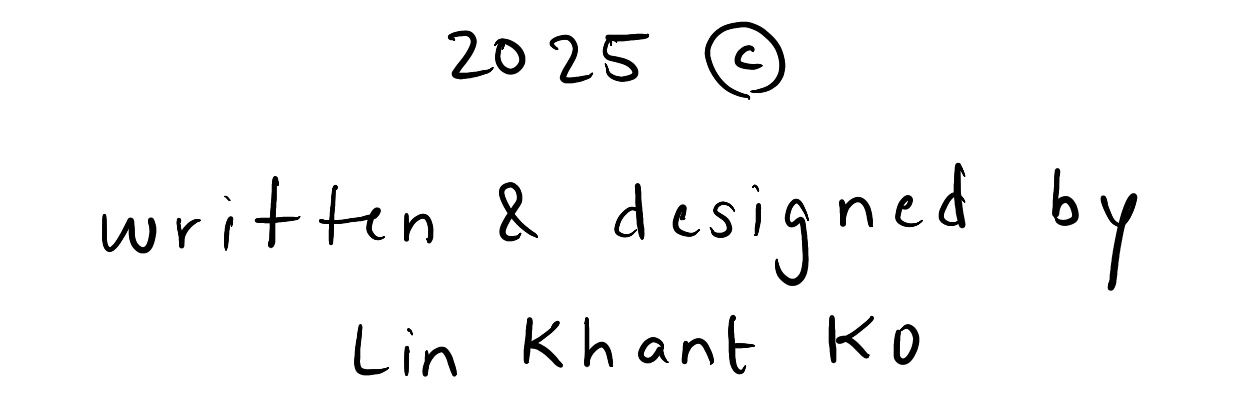 2025 ©
written & designed by
Lin Khant Ko